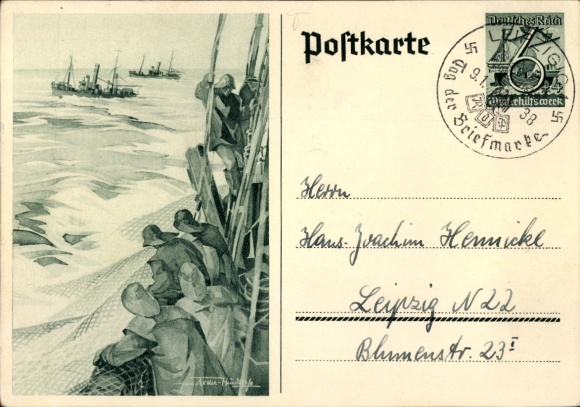 Postkarte
Deutsches Reich
6
Winterhilfswerk
LEIPZIG
9.1.38
Tag der Briefmarke
Herrn
Hans-Joachim Hennicke
Leipzig N 22
Blumenstr. 23 I